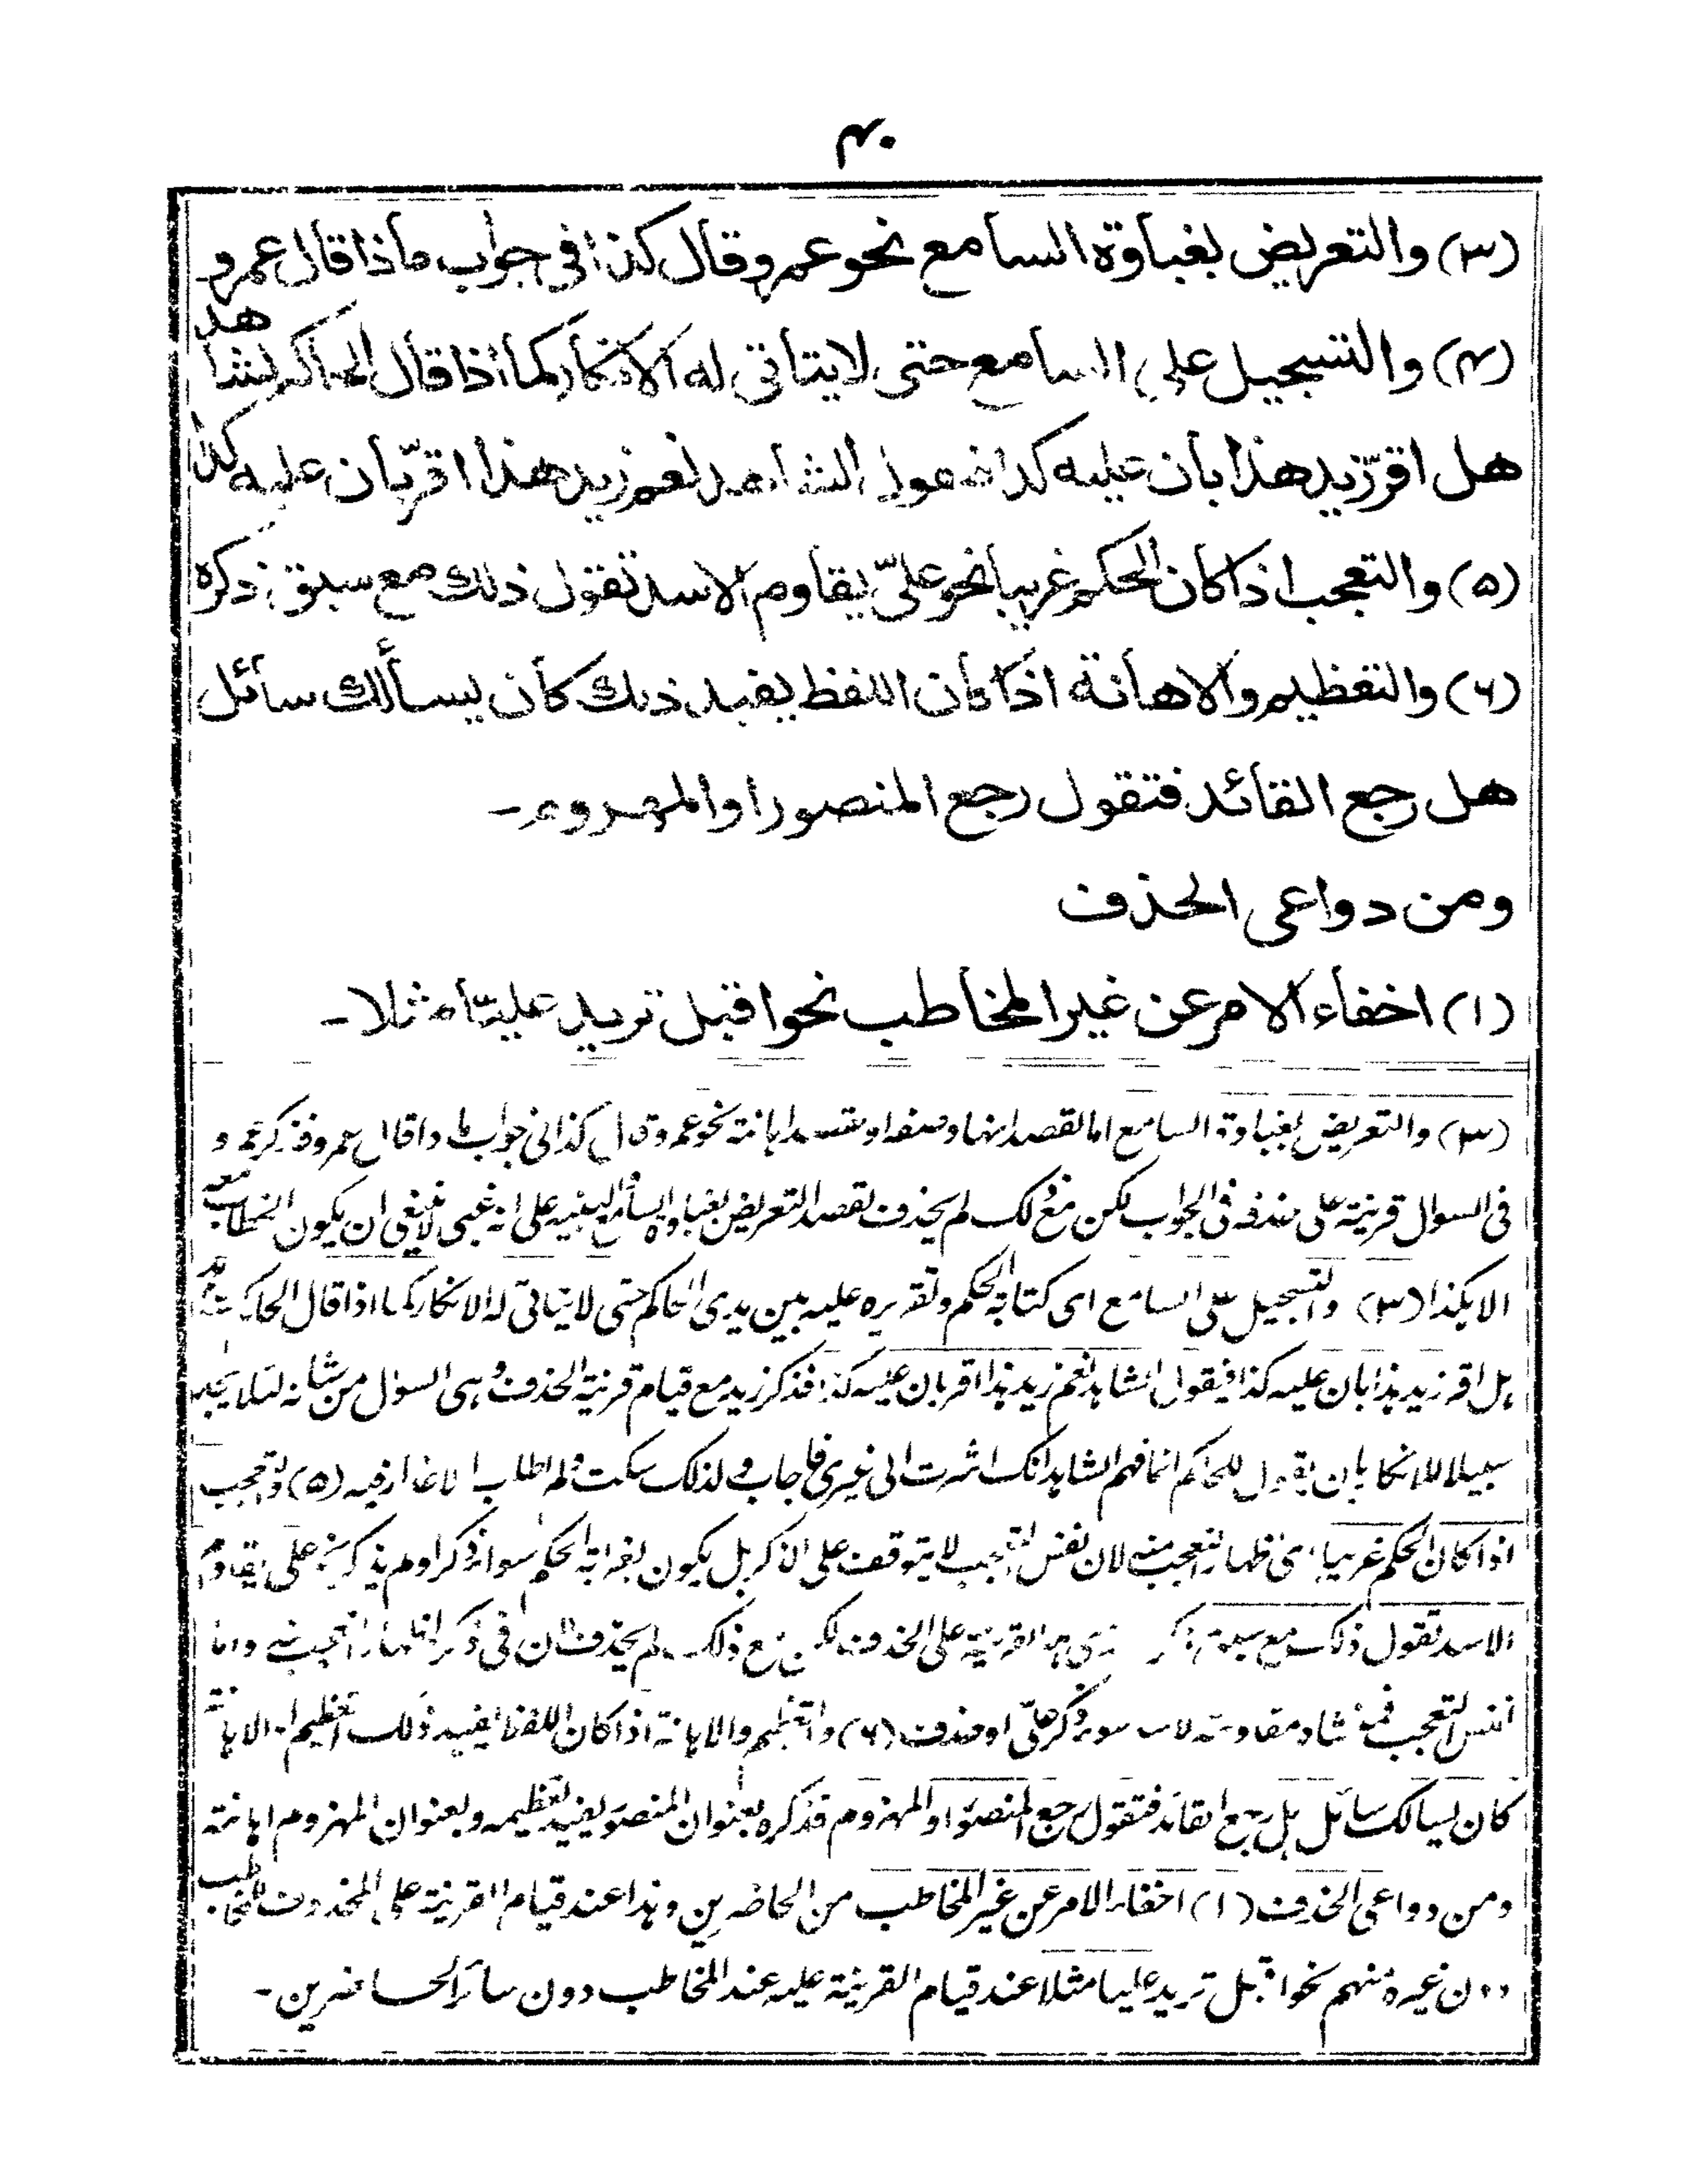 ۴۰
(۳) والتعريض بغباوة السامع نحو عمرو قال كذا في جواب ماذا قال عمرو۔
(۴) والتسجيل على السامع حتى لا يتاتى له الانكار كما اذا قال الحاكم لشاهد
هل اقرّ زيد هذا بان عليه كذا فيقول الشاهد نعم زيد هذا اقرّ بان عليه كذا
(۵) والتعجب اذا كان الحكم غريبا نحو علىّ يقاوم الاسد تقول ذلك مع سبق ذكره
(۶) والتعظيم والاهانة اذا كان اللفظ يفيد ذلك كأن يسألك سائل
هل رجع القائد فتقول رجع المنصور او المهزوم۔
ومن دواعى الحذف
(۱) اخفاء الامر عن غير المخاطب نحو اقبل تريد عليّا مثلا۔
(۳) والتعريض بغباوة السامع اما لقصد انها وصفه او لقصد اهانته نحو عمرو قال كذا فى جواب ماذا قال عمرو فذكر عمرو
فى السوال قرينة على حذفه فى الجواب لكن مع ذلك لم يحذف لقصد التعريض بغباوة السامع لتنبيه على انه غبى لا ينبغى ان يكون الخطاب معه
الا هكذا (۴) والتسجيل على السامع اى كتابة الحكم وتقريره عليه بين يدى الحاكم حتى لا يتاتى له الانكار كما اذا قال الحاكم لشاهد
هل اقر زيد هذا بان عليه كذا فيقول الشاهد نعم زيد هذا اقر بان عليه كذا فذكر زيد مع قيام قرينة الحذف وهى السوال من شانه لئلا يجد
سبيلا للانكار بان يقول للحاكم انما فهم الشاهد انك اشرت الى غيرى فاجاب ولذلك سكت ولم اطلب الاعذار فيه (۵) والتعجب
اذا كان الحكم غريبا اى اظهار التعجب منه لان نفس التعجب لا يتوقف على الذكر بل يكون لغرابة الحكم سواء ذكر او لم يذكر نحو على يقاوم
الاسد تقول ذلك مع سبق ذكر القرينة على الحذف لكن مع ذلك لم يحذف لان فى ذكر اظهار التعجب منه واما
نفس التعجب فمنشاه مقاومته الاسد سواء ذكر علىّ او حذف (۶) والتعظيم والاهانة اذا كان اللفظ يفيد ذلك التعظيم او الاهانة
كان يسالك سائل هل رجع القائد فتقول رجع المنصور او المهزوم فذكره بعنوان المنصور يفيد تعظيمه وبعنوان المهزوم اهانته
ومن دواعى الحذف (۱) اخفاء الامر عن غير المخاطب من الحاضرين وهذا عند قيام القرينة على المحذوف للمخاطب
دون غيره منهم نحو اقبل تريد عليا مثلا عند قيام القرينة عليه عند المخاطب دون سائر الحاضرين۔